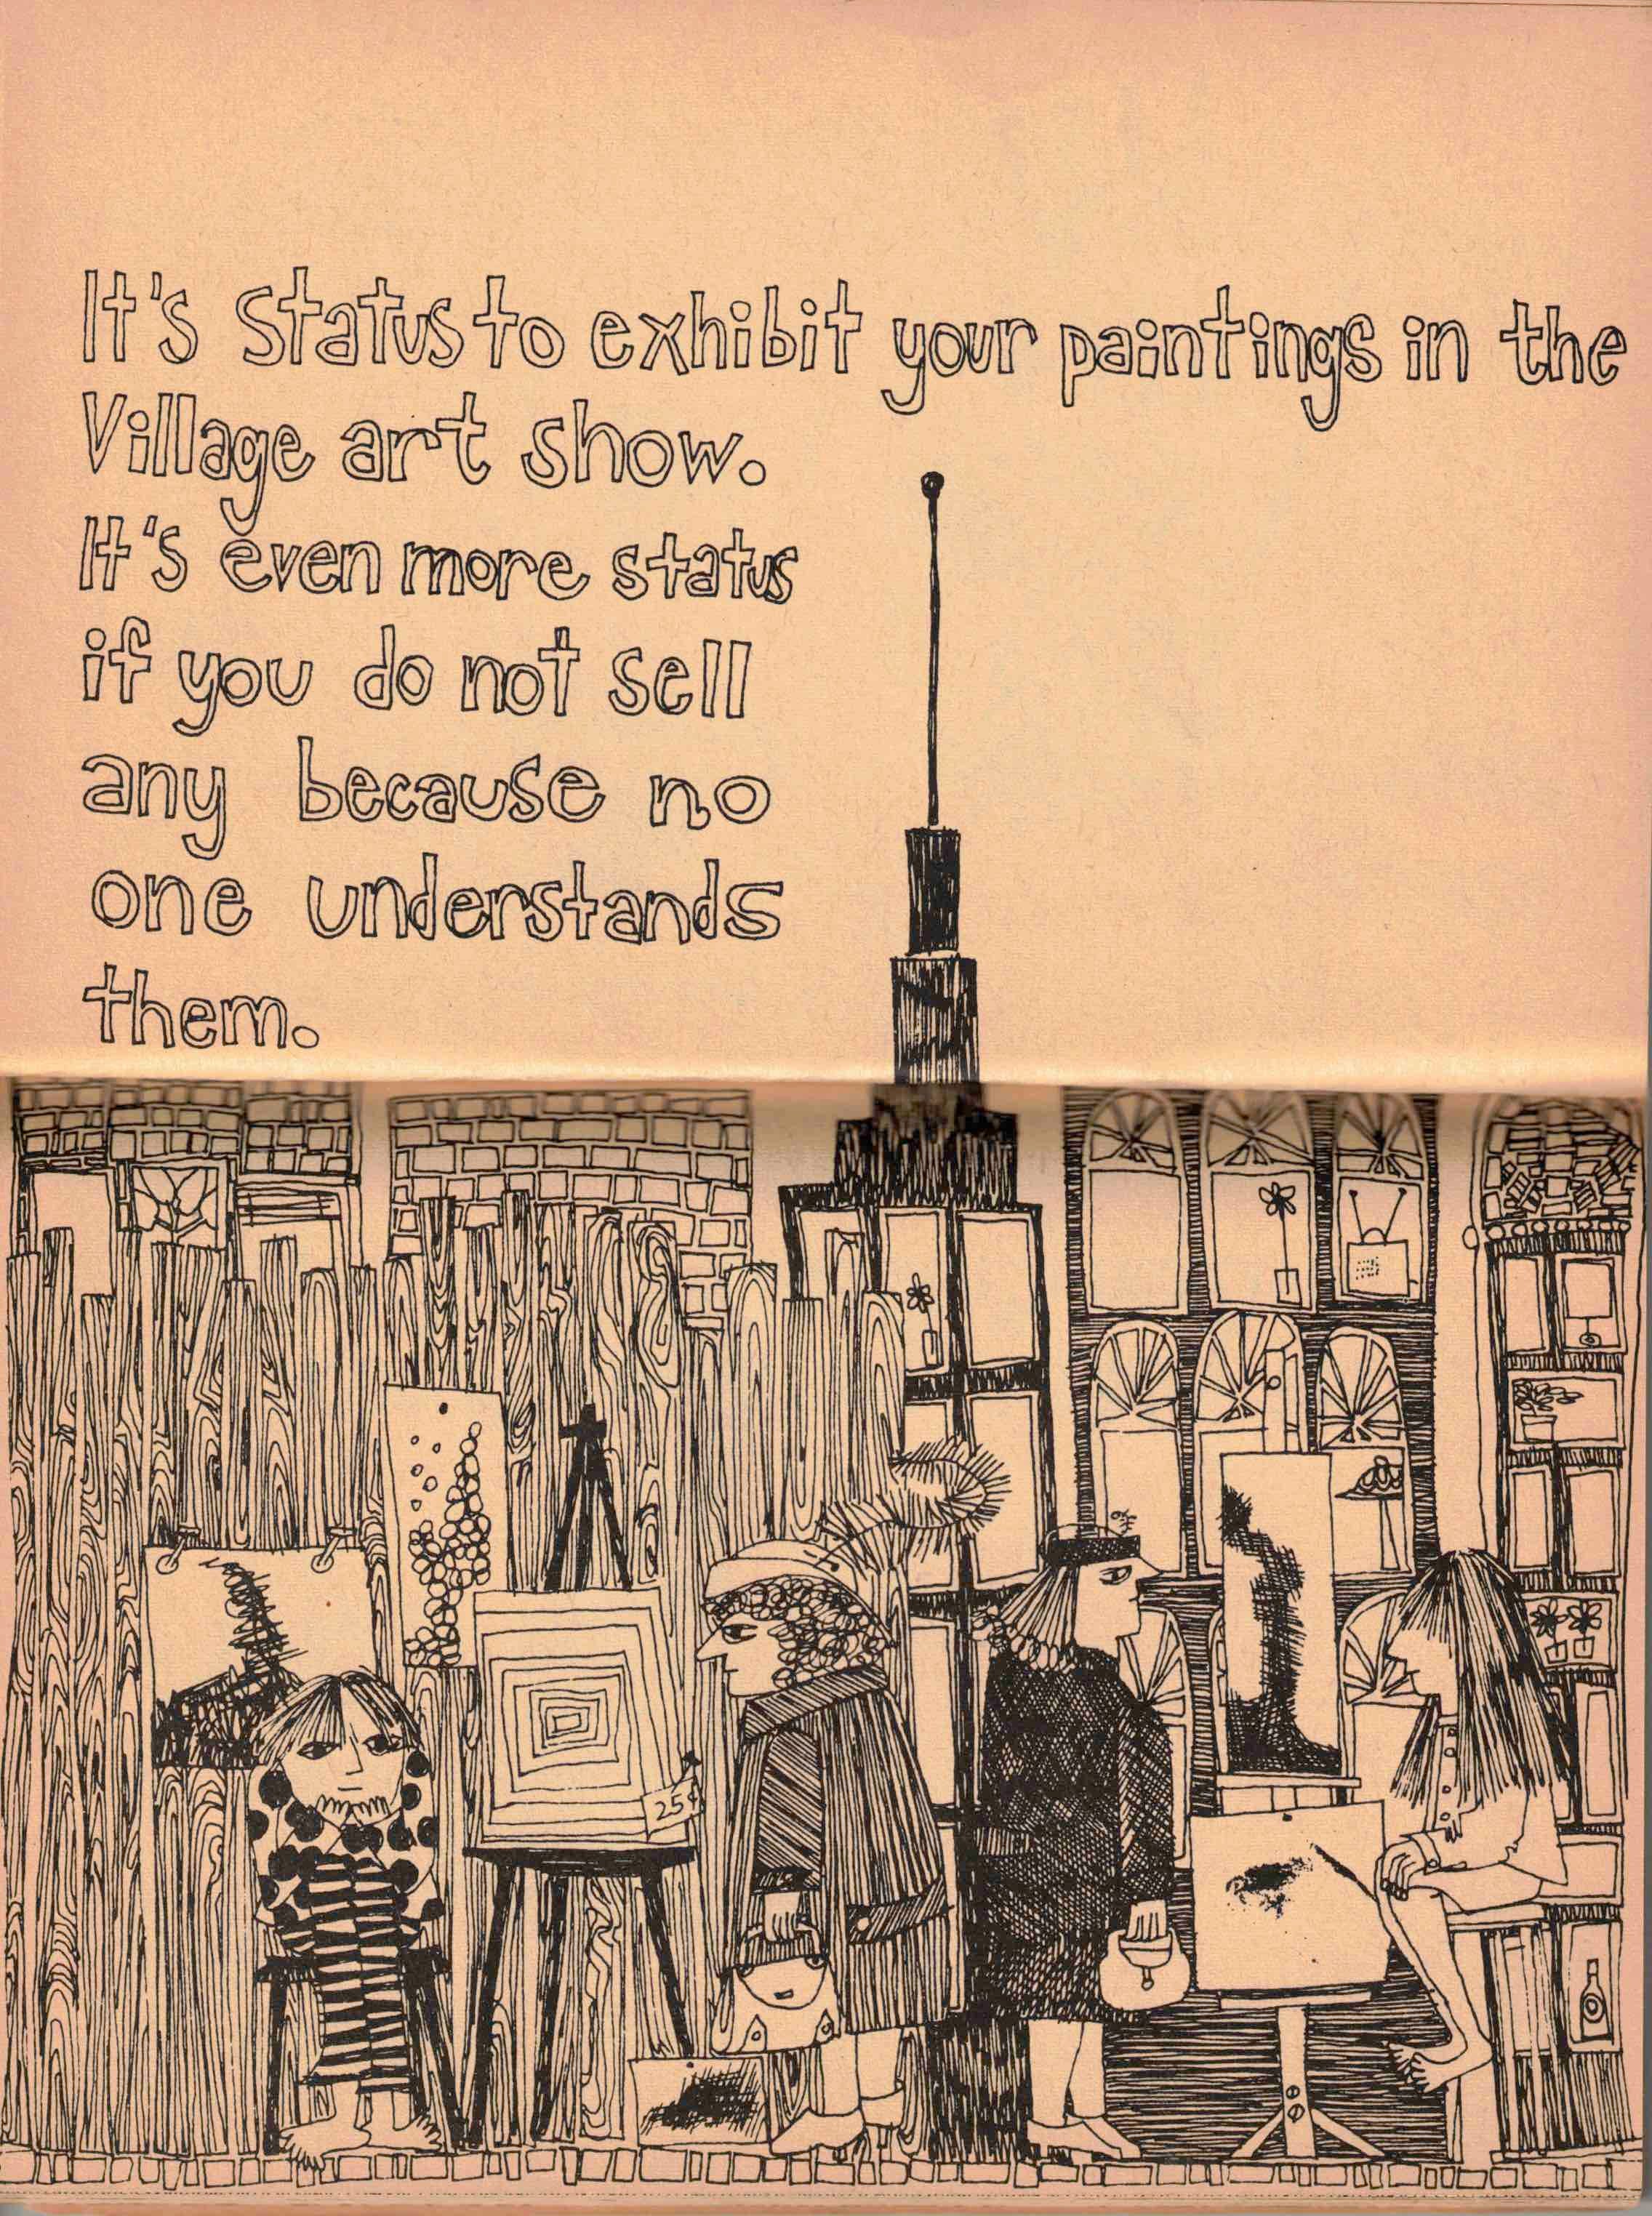 It's status to exhibit your paintings in the
Village art show.
It's even more status
if you do not sell
any because no
one understands
them.
25¢